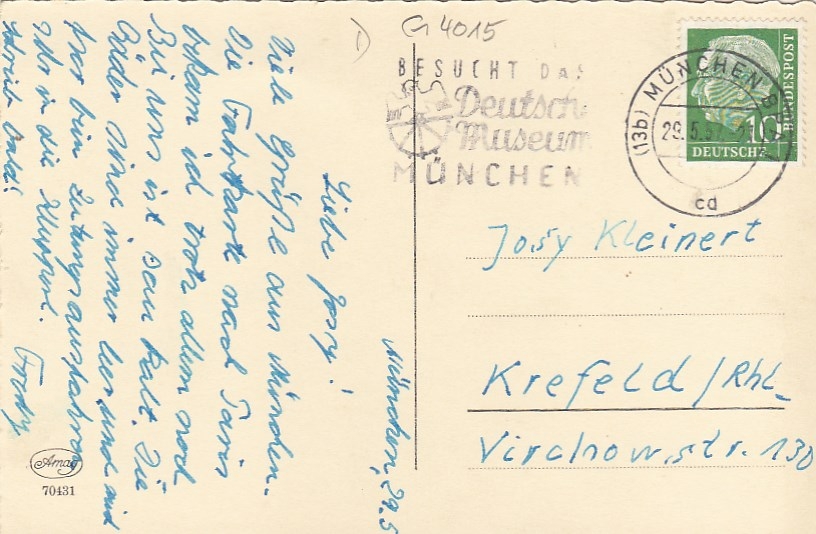 G 4015
BESUCHT DAS
Deutsche
Museum
MÜNCHEN
(13b) MÜNCHEN
29.5.57
cd
10
DEUTSCHE
BUNDESPOST
München, 29.5
Liebe Josy!
Viele Grüße aus München.
Die Fahrkarte nach Paris
bekam ich trotz allem noch
Bei uns ist sau kalt. Die
Bäder sind immer leer und mid
hier beim Zeitungsausfahren
in die
bald!
Josy Kleinert
Krefeld/Rhl.
Virchowstr. 130
Amag
70431